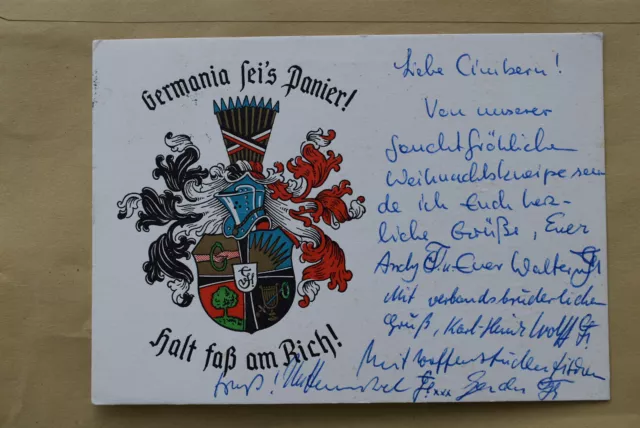 Germania sei's Panier!
Halt faß am Rich!
Liebe Cimbern!
Von unserer
feuchtfröhlichen
Weihnachtskneipe sen
de ich Euch herz-
liche Grüße, Euer
Andy Euer Walter
Mit verbandsbrüderlichen
Gruß, Karl-Heinz Wolff
Mit
Gruß!